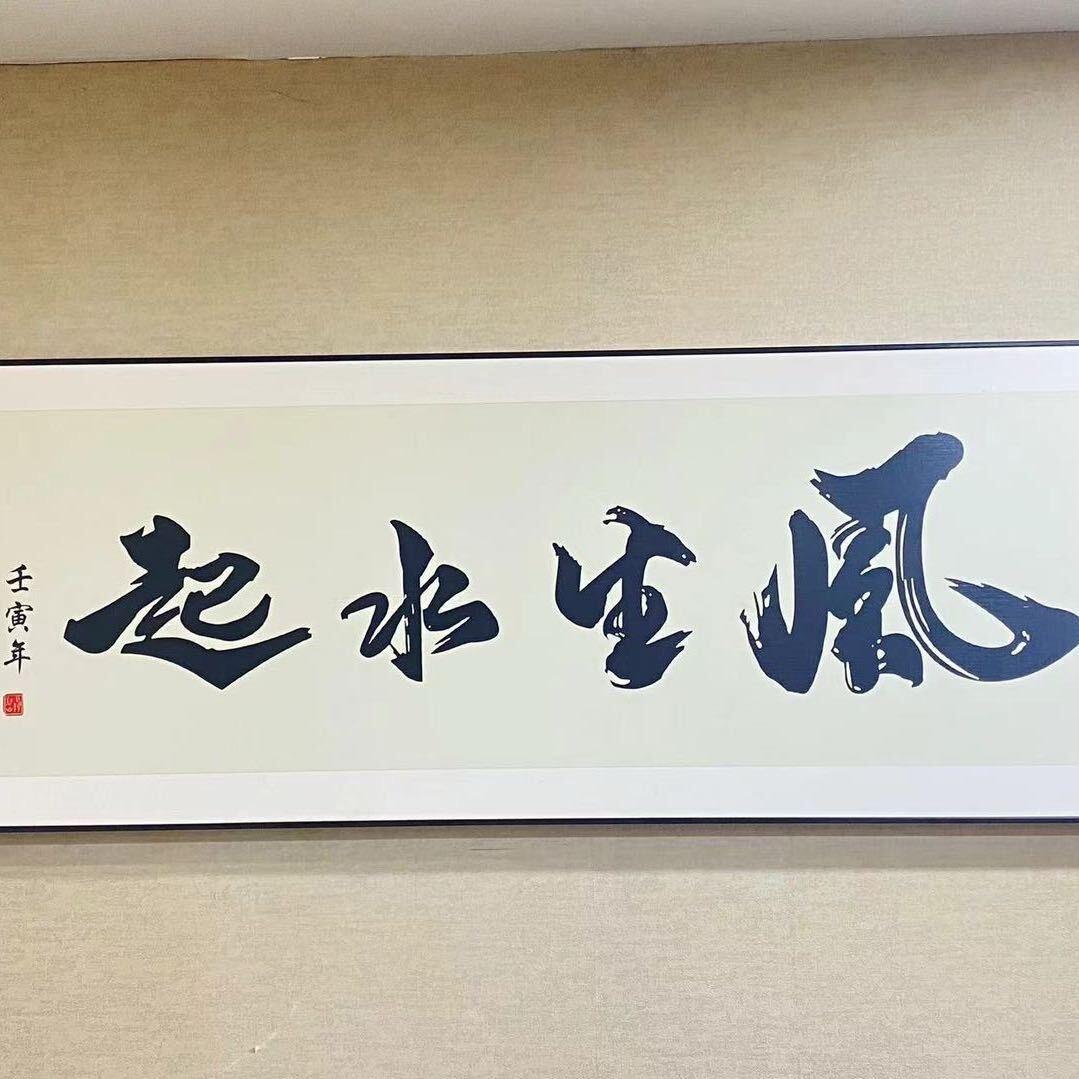 風生水起
壬寅年